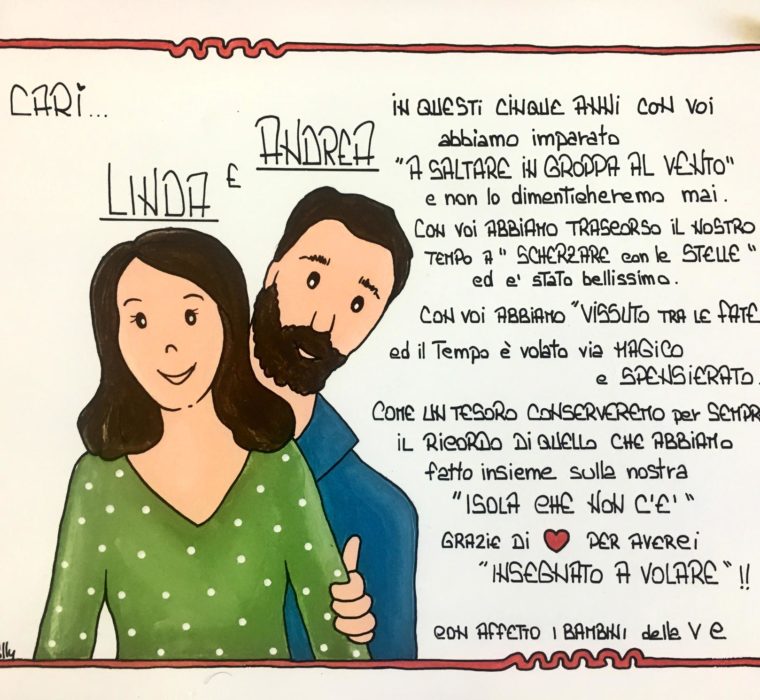 CARI...
LINDA E ANDREA
IN QUESTI CINQUE ANNI CON VOI
abbiamo imparato
"A SALTARE IN GROPPA AL VENTO"
e non lo dimenticheremo mai.
CON VOI ABBIAMO TRASCORSO IL NOSTRO
TEMPO A " SCHERZARE con le STELLE "
ed e' STATO bellissimo.
CON VOI ABBIAMO "VISSUTO TRA LE FATE
ed il Tempo è volato via MAGICO
e SPENSIERATO.
COME UN TESORO CONSERVEREMO per SEMPR
IL RICORDO DI QUELLO CHE ABBIAMO
fatto insieme sulla nostra
"ISOLA CHE NON C'E'"
GRAZIE DI ❤ PER AVERCI
"INSEGNATO A VOLARE" !!
CON AFFETTO I BAMBINI della V C